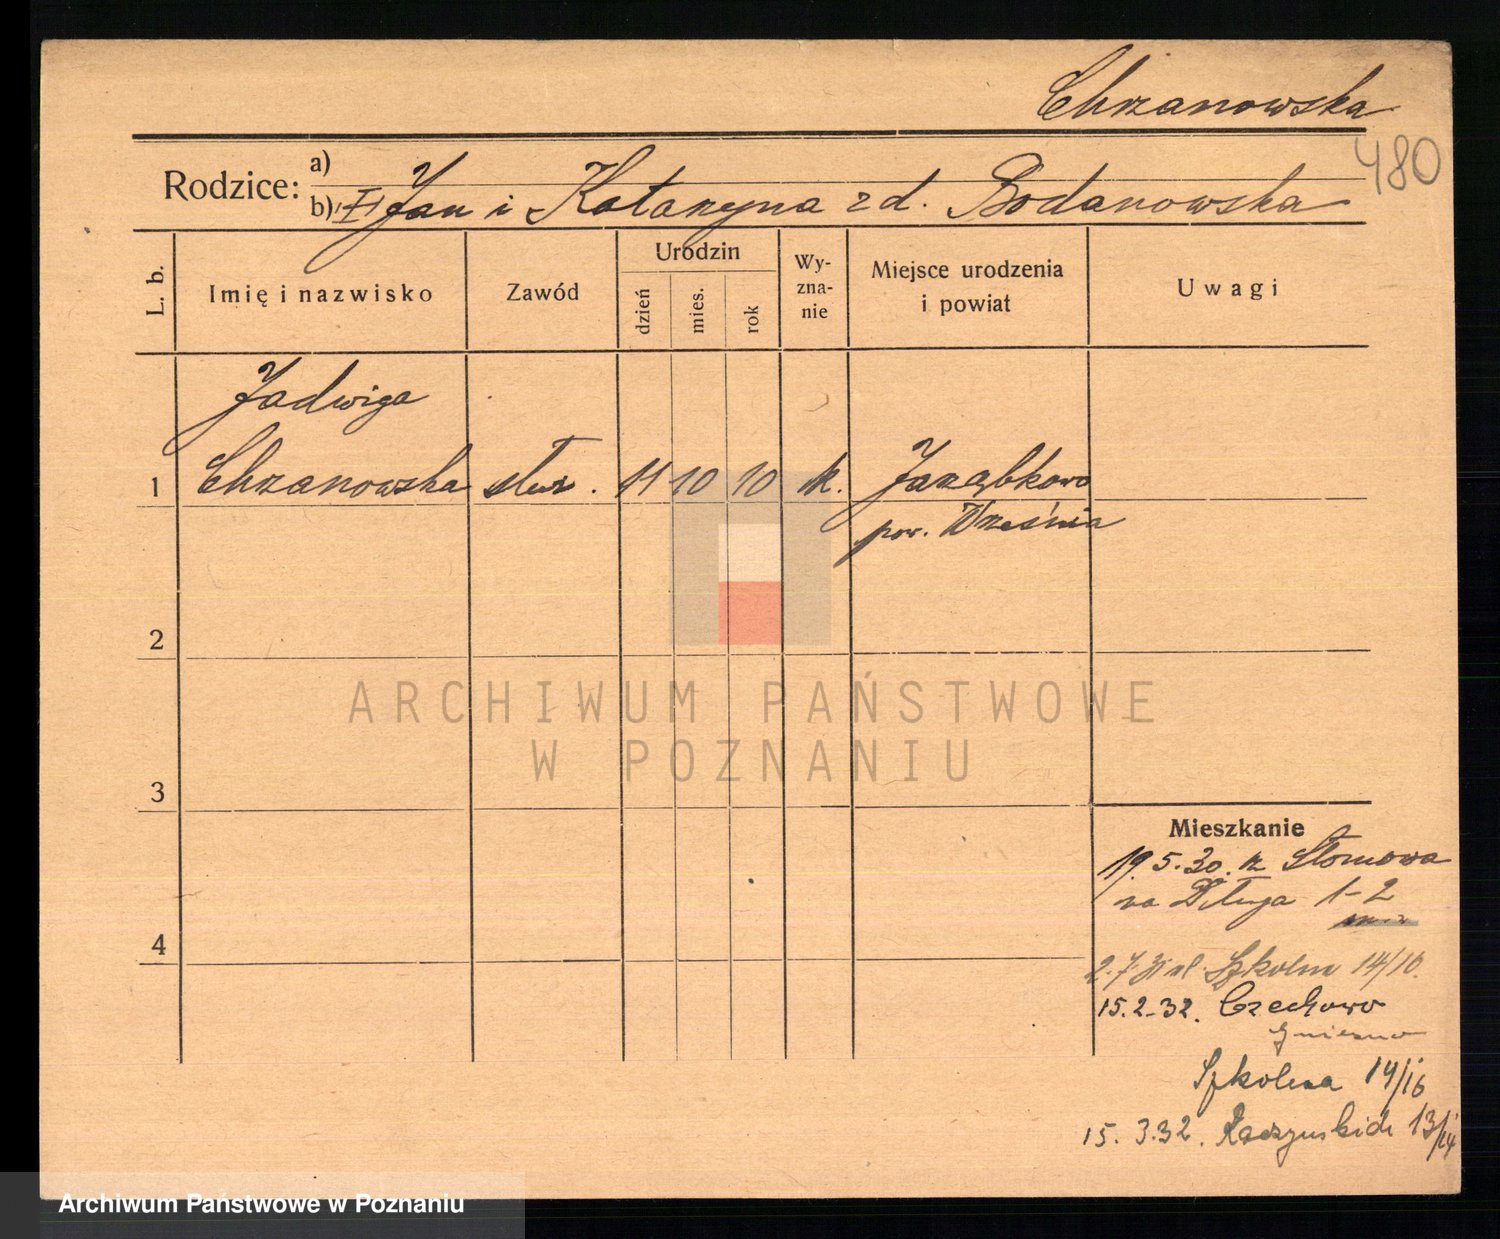 Chrzanowska
480
Rodzice:
a)
b) Jan i Katarzyna z d. Bodanowska
L. b.
Imię i nazwisko
Zawód
Urodzin
dzień
mies.
rok
Wy-
zna-
nie
Miejsce urodzenia
i powiat
Uwagi
Jadwiga
1 Chrzanowska służ. 11 10 10 rk. Jarząbkowo
pow. Września
2
3
4
Mieszkanie
19.5.30. z Słomowa
na Długa 1-2
2.7.31 ul. Szkolna 14/10.
15.2.32. Czechowo
Gniezno
Szkolna 14/16
15.3.32. Raczyńskich 13/14
ARCHIWUM PAŃSTWOWE
W POZNANIU
Archiwum Państwowe w Poznaniu